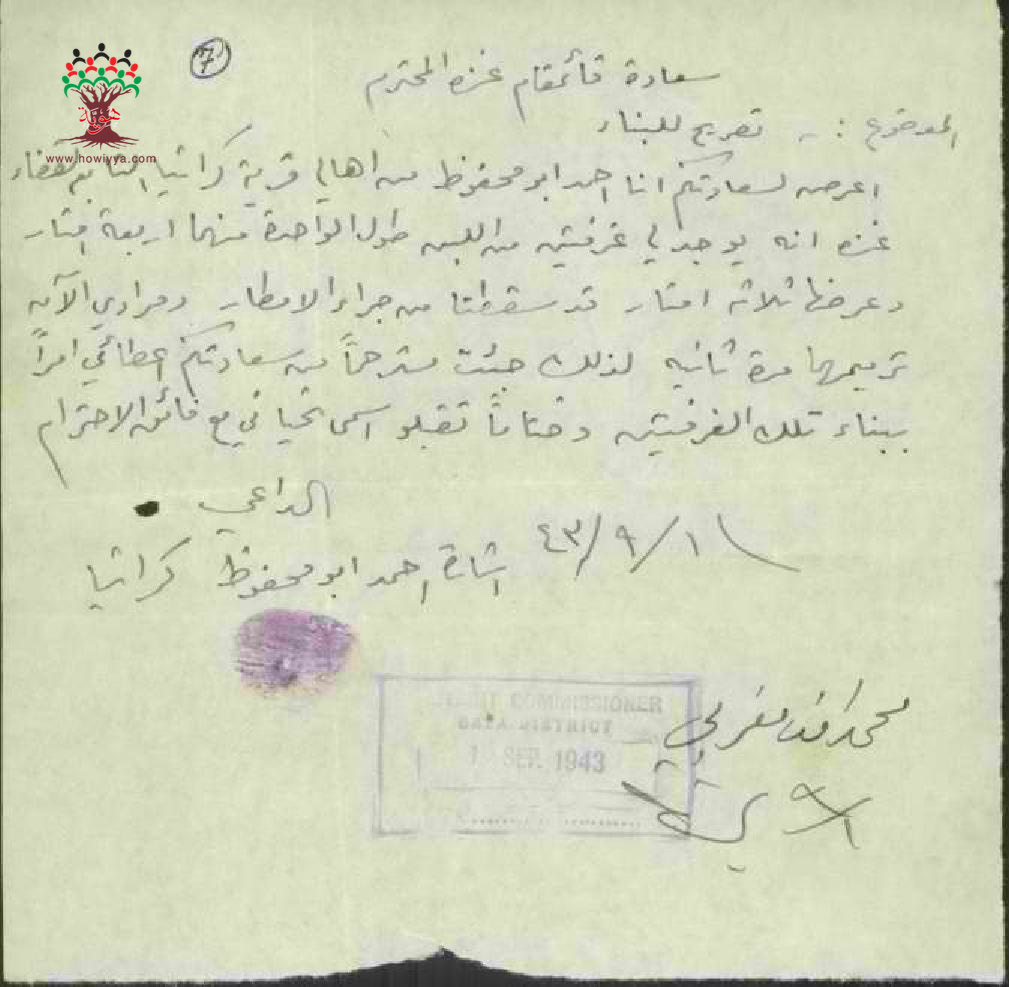 7
سعادة قائمقام غزه المحترم
الموضوع :- تصريح للبناء
اعرض لسعادتكم انا احمد ابو محفوظ من اهالي قرية كراتيا التابع لقضاء
غزه انه يوجد لي غرفتين من اللبن طول الواحدة منهما اربعة امتار
وعرضها ثلاثه امتار قد سقطتا من جراء الامطار ومرادي الآن
ترميمها مرة ثانيه لذلك جئت مسترحماً من سعادتكم اعطائي امراً
ببناء تلك الغرفتين وختاماً تقبلو اسمى تحياتي مع فائق الاحترام
الداعي
٤٣/٩/١
اشارة احمد ابو محفوظ كراتيا
COMMISSIONER
GAZA DISTRICT
SEP. 1943
محمد افندي مغربي
هوية
www.howiyya.com